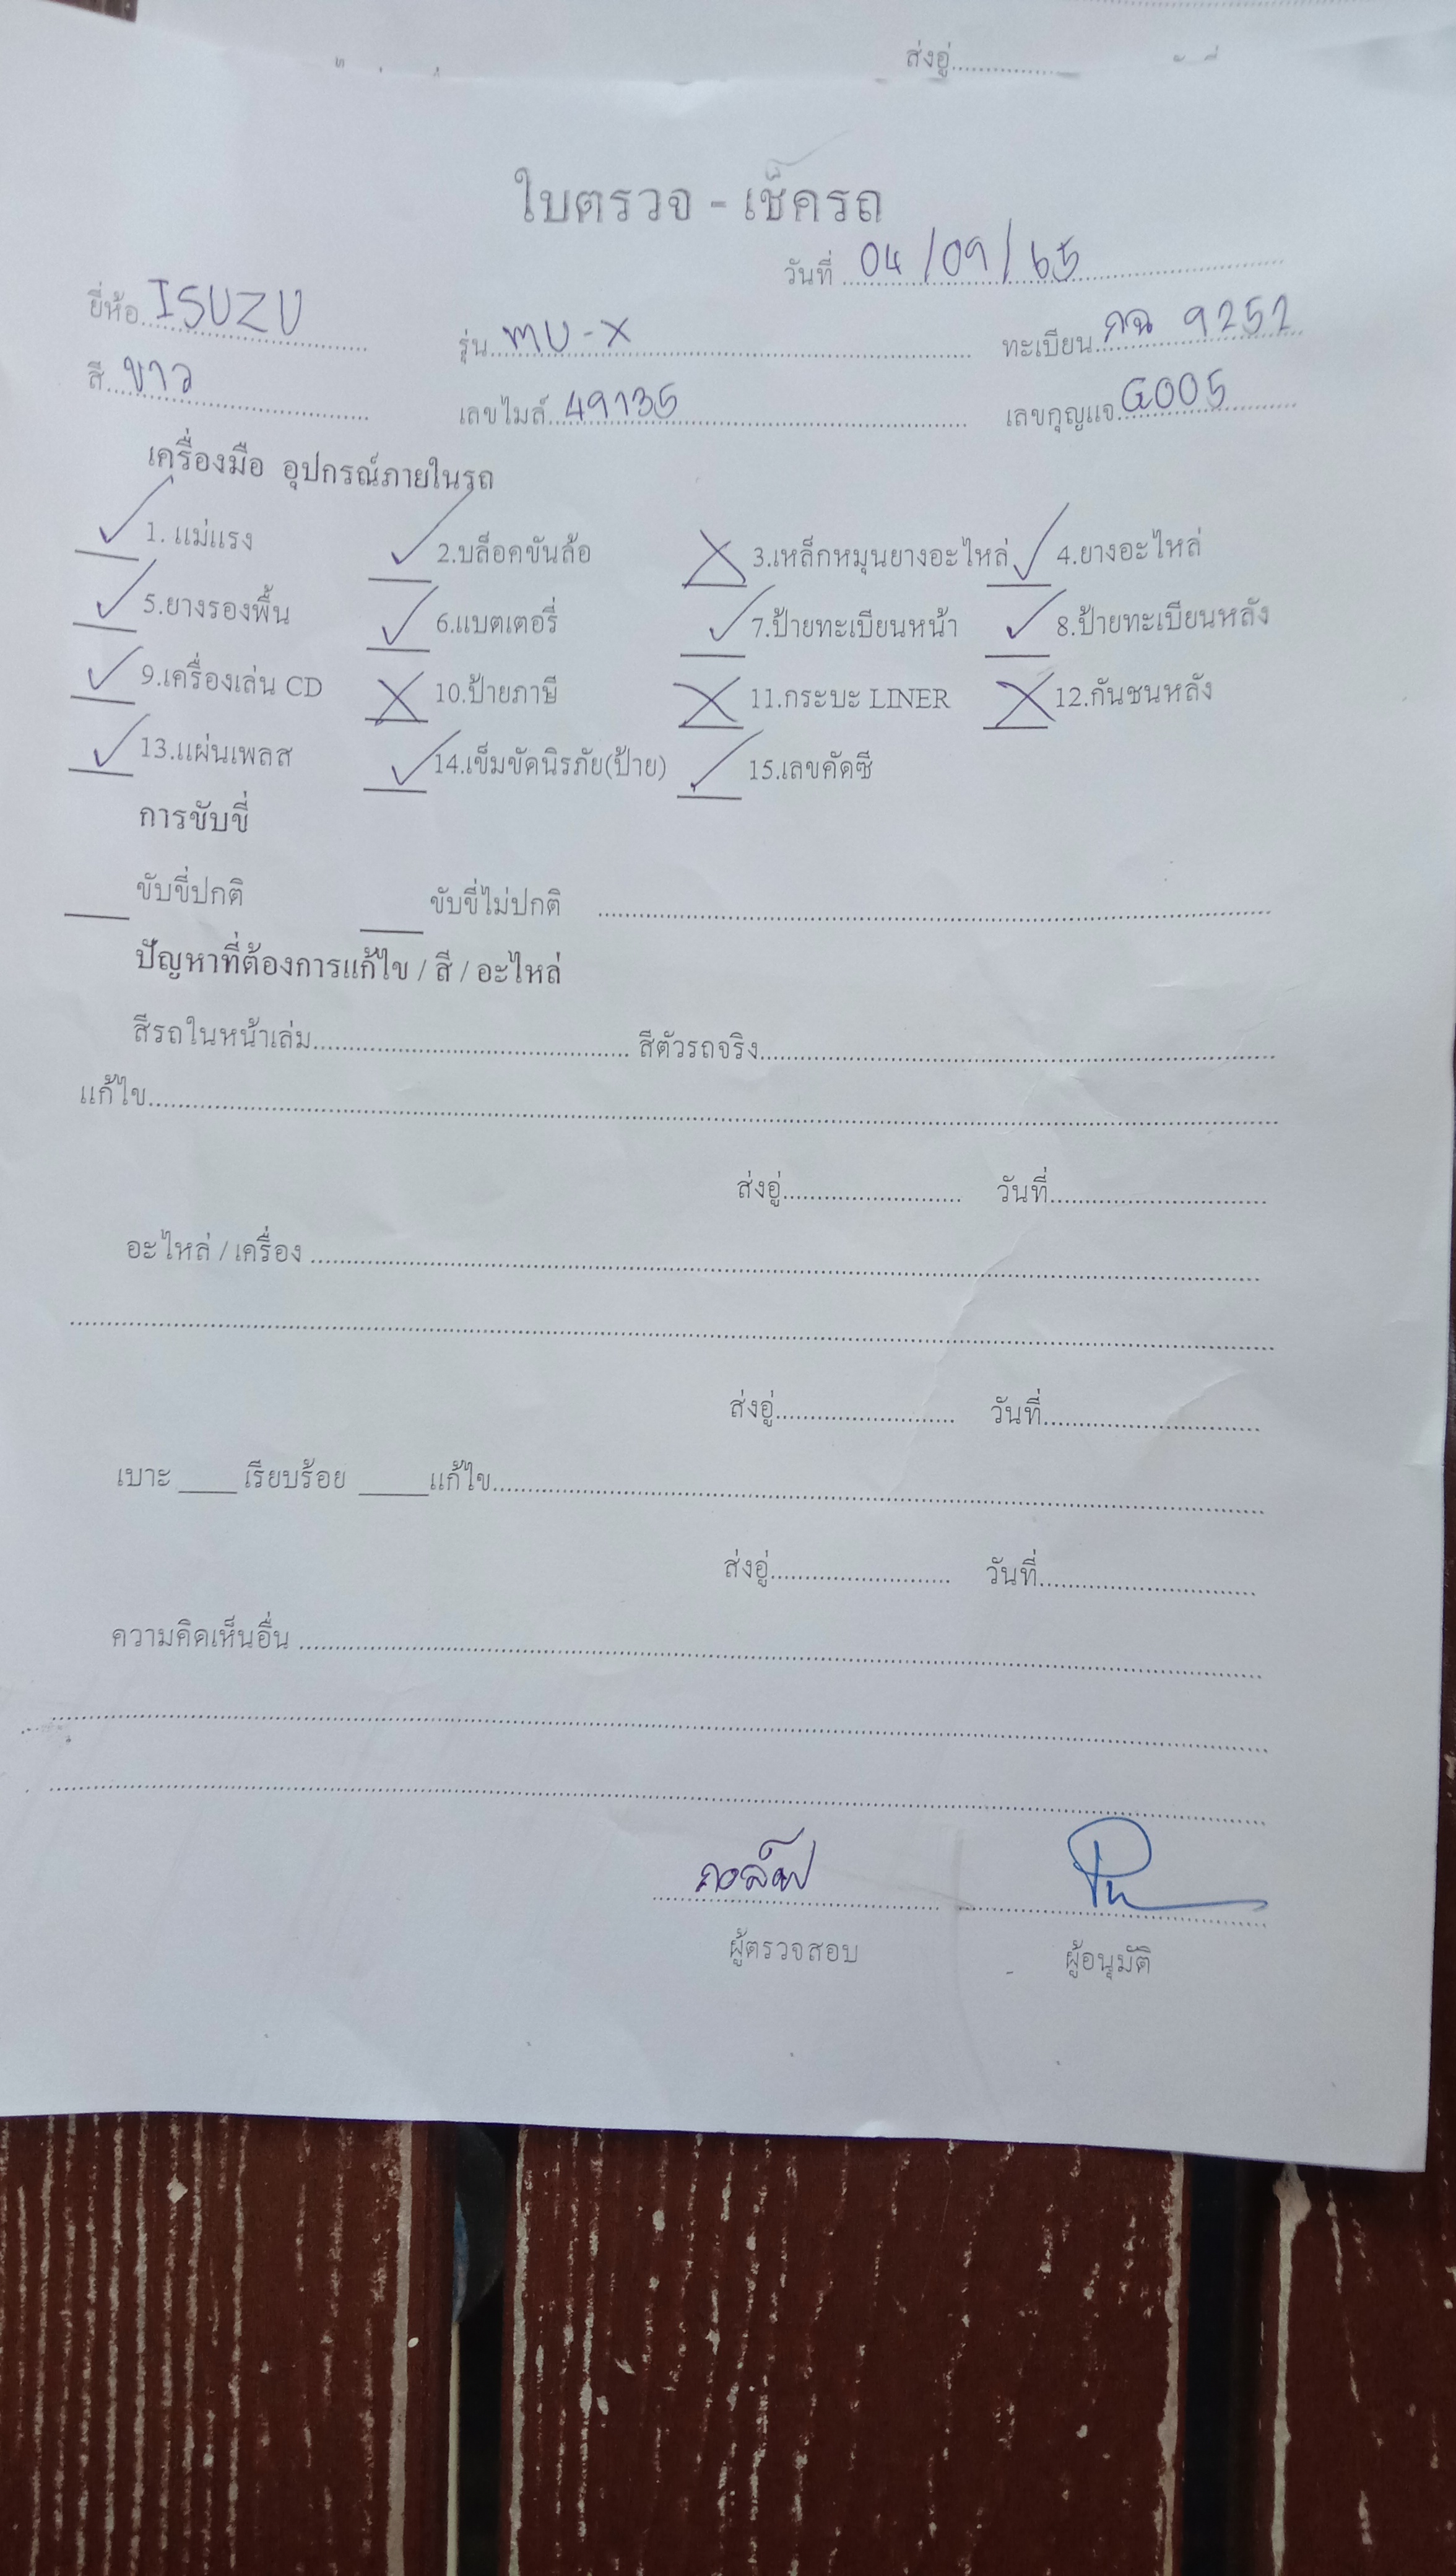 ส่งอู่
ใบตรวจ - เช็ครถ
วันที่ 04/09/65
ยี่ห้อ ISUZU รุ่น MU-X ทะเบียน กฉ 9252
สี ขาว เลขไมล์ 49135 เลขกุญแจ G005
เครื่องมือ อุปกรณ์ภายในรถ
✓ 1. แม่แรง ✓ 2.บล็อคขันล้อ X 3.เหล็กหมุนยางอะไหล่ ✓ 4.ยางอะไหล่
✓ 5.ยางรองพื้น ✓ 6.แบตเตอรี่ ✓ 7.ป้ายทะเบียนหน้า ✓ 8.ป้ายทะเบียนหลัง
✓ 9.เครื่องเล่น CD X 10.ป้ายภาษี X 11.กระบะ LINER X 12.กันชนหลัง
✓ 13.แผ่นเพลส ✓ 14.เข็มขัดนิรภัย(ป้าย) ✓ 15.เลขคัดซี
การขับขี่
ขับขี่ปกติ ขับขี่ไม่ปกติ
ปัญหาที่ต้องการแก้ไข / สี / อะไหล่
สีรถในหน้าเล่ม สีตัวรถจริง
แก้ไข
ส่งอู่ วันที่
อะไหล่ / เครื่อง
ส่งอู่ วันที่
เบาะ เรียบร้อย แก้ไข
ส่งอู่ วันที่
ความคิดเห็นอื่น
กอล์ฟ
ผู้ตรวจสอบ ผู้อนุมัติ